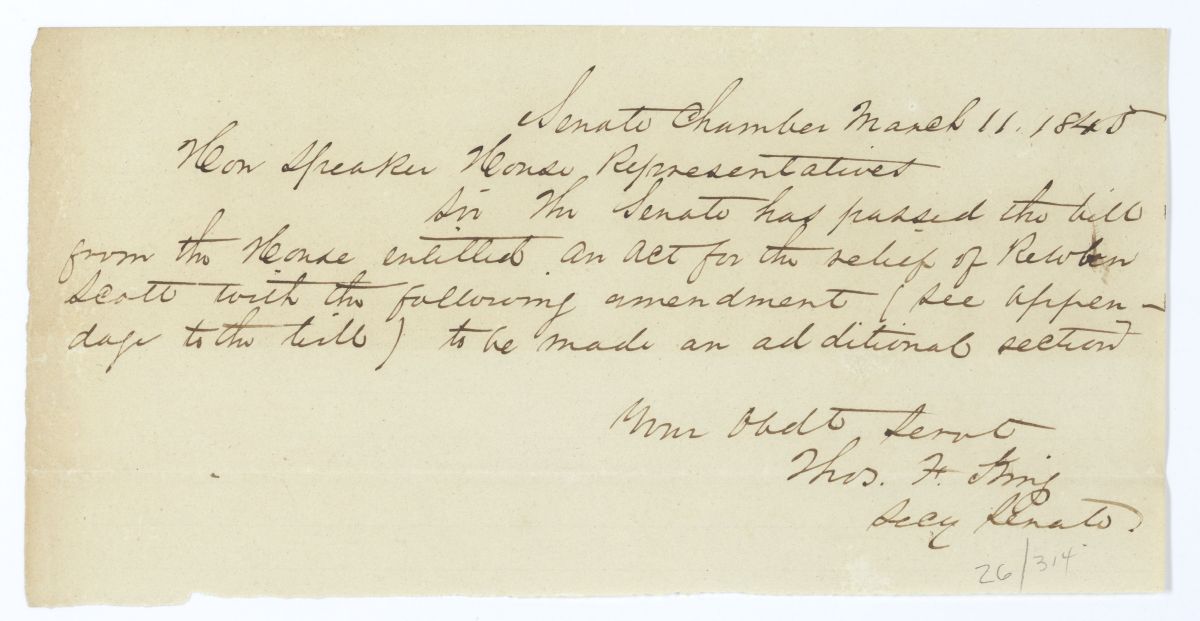 Senate Chamber March 11. 1845
Hon Speaker House Representatives
Sir The Senate has passed the bill
from the House entitled an act for the relief of Rewben
Scott with the following amendment (see appen-
dage to the bill) to be made an additional section
Your Obdt Servt
Thos. F. King
Secy Senate.
26/314